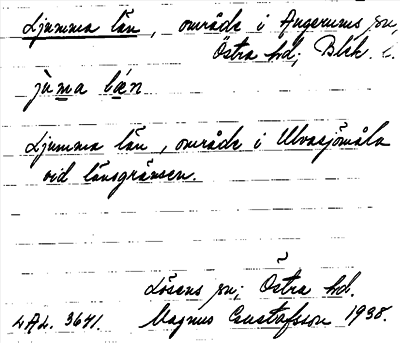 Ljumma län, område i Augerums sn,
Östra hd, Blek. l.
jùma læn
Ljumma län, område i Ulvasjömåla
vid länsgränsen.
Lösens sn; Östra hd.
LAL. 3641. Magnus Gustafsson 1938.